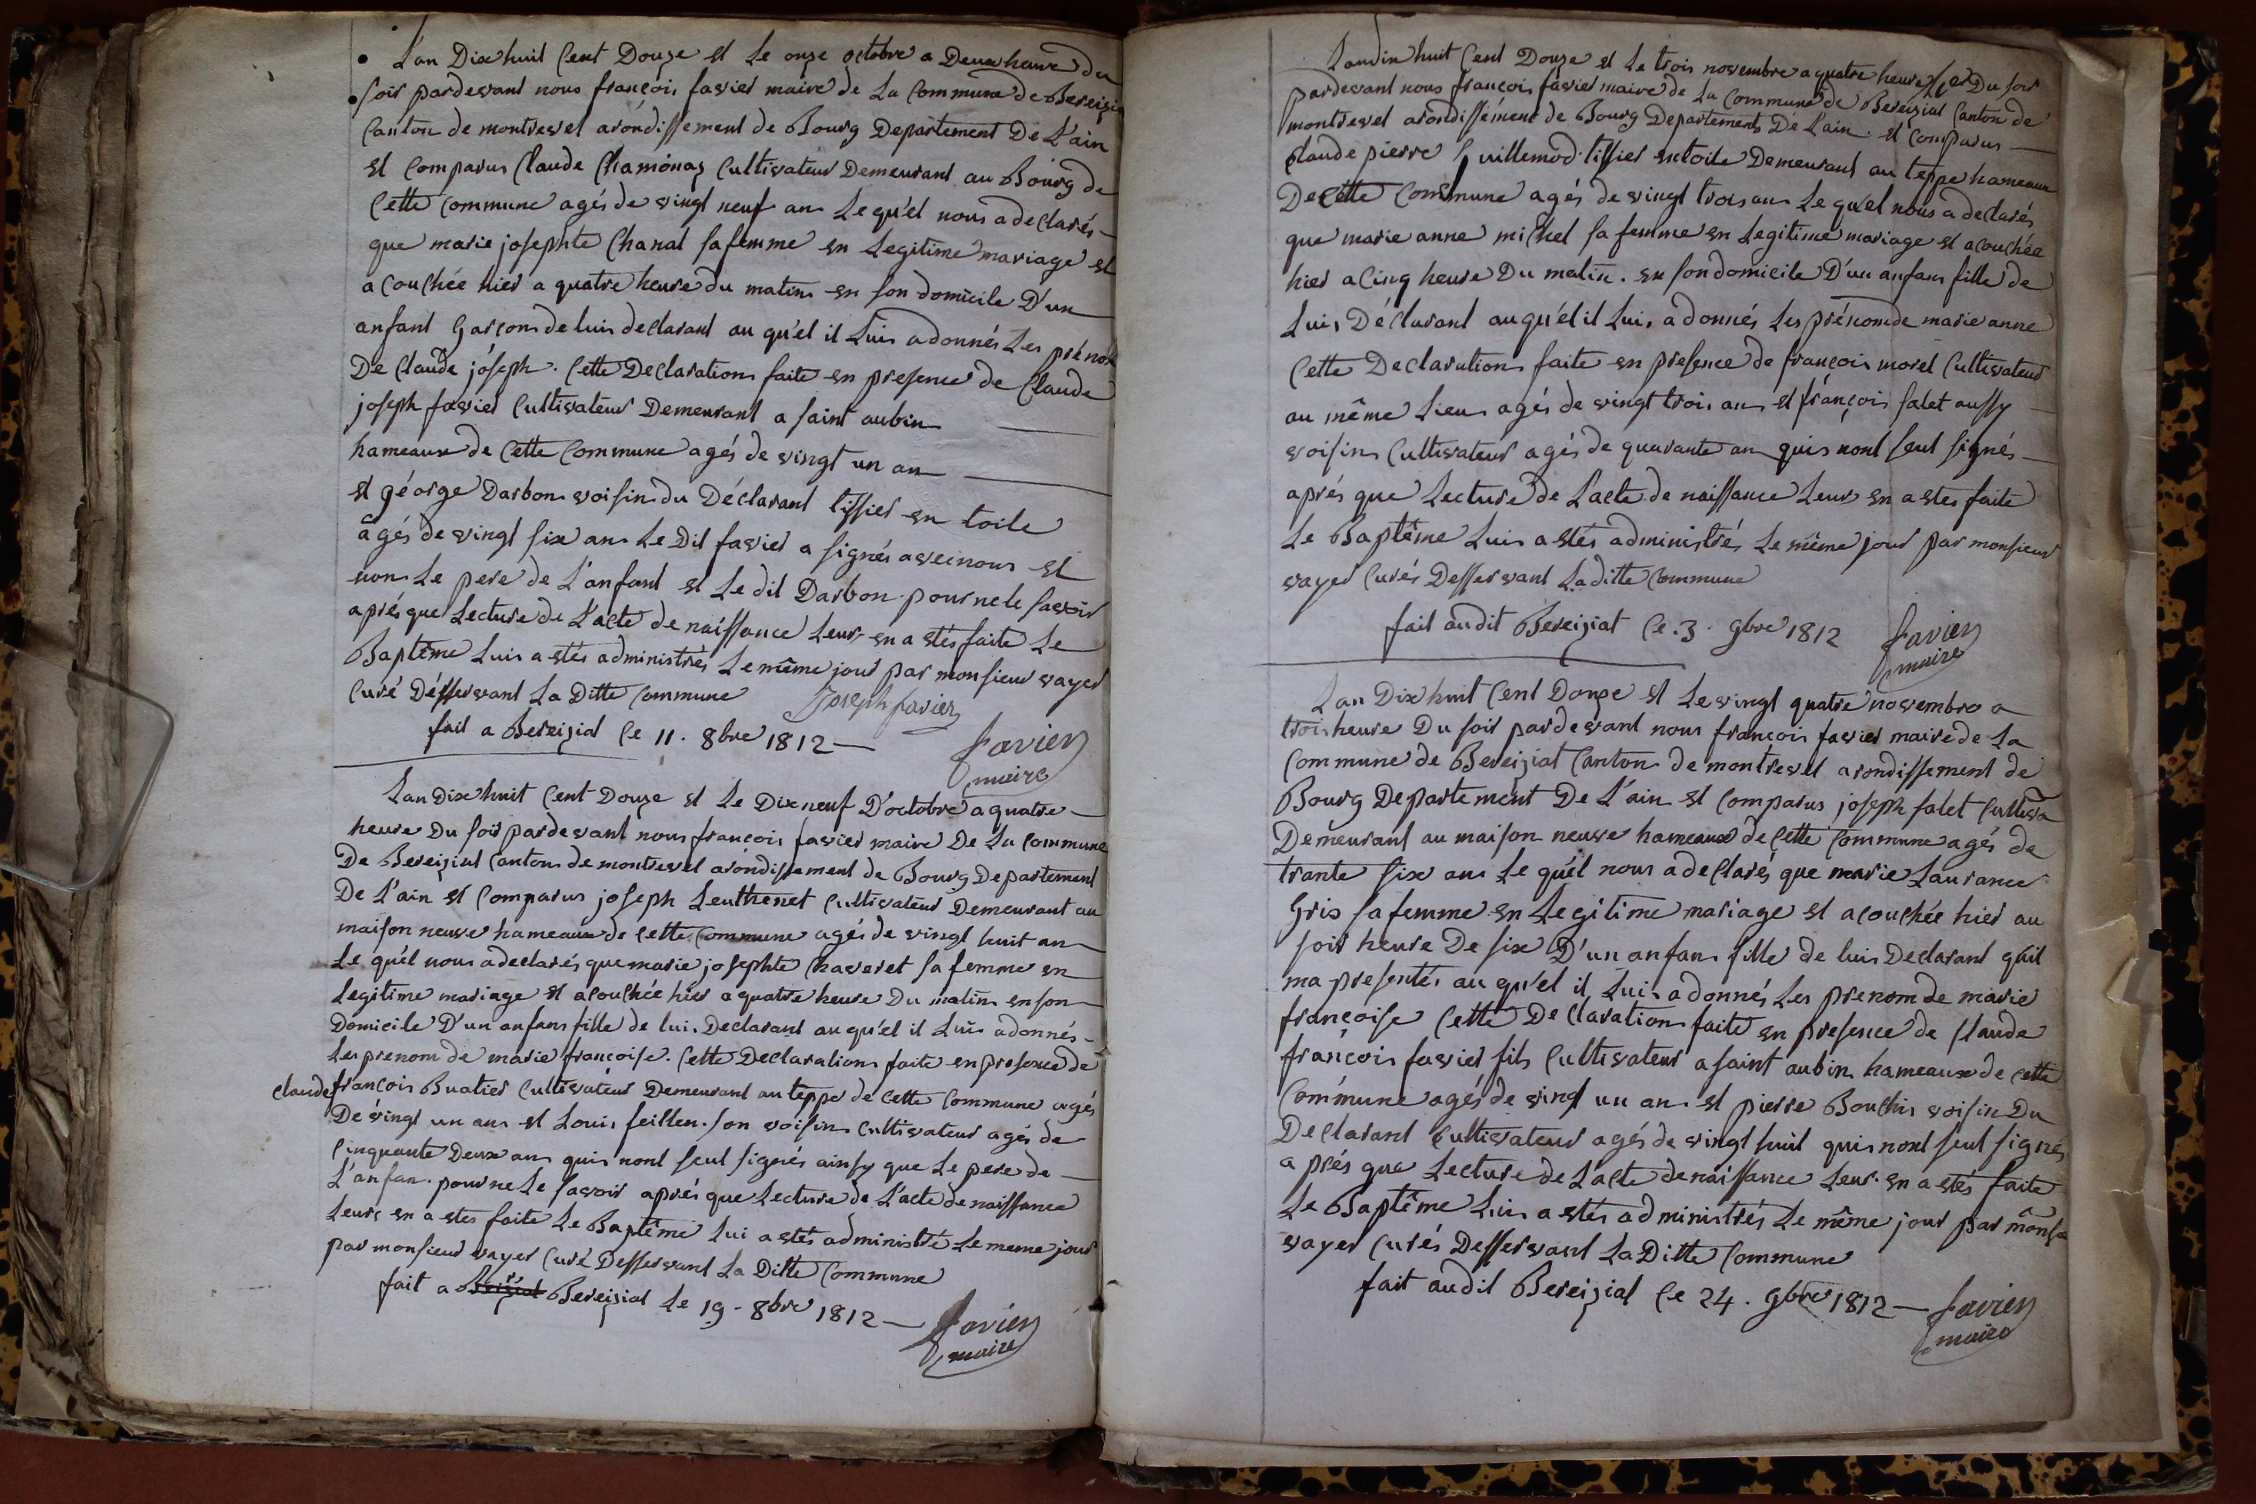 L'an Dix huit Cent Douze et Le onze octobre a Deux heure du
soir pardevant nous françois favier maire de La Commune de Bereizia
Canton de montrevel arondissement de Bourg Departement De L'ain
et Comparus Claude Chamonaz Cultivateur Demeurant au Bourg de
Cette Commune agés de vingt neuf an Le qu'el nous a declarés
que marie josephte Chanal sa femme en Legitime mariage et
acouchée hier a quatre heure du matin en son domicile D'un
anfant Garçon de luis declarant au qu'el il Luis a donnés Les prénom
De Claude joseph. Cette Declaration faite en presence de Claude
joseph favier Cultivateur Demeurant a saint aubin
hameaux de Cette Commune agés de vingt un an
et géorge Darbon voisin du Déclarant tissier en toile
agés de vingt six an Le Dit favier a signés avec nous et
non Le pere de L'anfant et Le dit Darbon pour ne le savoir
aprés que Lecture de L'acte de naissance Leur en a etés faite Le
Baptême Luis a etés administrés Le même jour par monsieur vayer
Curé Déssservant La Ditte Commune
Joseph favier
fait a Bereizial Ce 11. 8bre 1812
favier
maire
Lan Dix huit Cent Douze et Le Dix neuf D'octobre a quatre
heure Du soir pardevant nous françois favier maire De La Commune
De Bereizial Canton de montrevel arondissement de Bourg Departement
De L'ain et Comparus joseph Leuthenet Cultivateur Demeurant au
maison neuve hameaux de Cette Commune agés de vingt huit an
Le quél nous a declarés que marie josephte Chaveret sa femme en
Legitime mariage et acouchée hier a quatre heure Du matin en son
Domicile D'un anfans fille de lui. Declarant au qu'el il Luis a donnés
Les prenom de marie françoise. Cette Declaration faite en presence de
claude françois Buatier Cultivateur Demeurant au teppe de Cette Commune agés
De vingt un ans et Louis feillen son voisin Cultivateur agés de
Cinquante Deux ans quis nont seut signés ainsy que Le pere de
L'anfan. pour ne Le savoir aprés que Lecture de L'acte de naissance
Leurs en a etes faite Le Baptême Lui a etés administré Le meme jour
par monsieur vayer Curé Dessservant La Ditte Commune
fait a Bereizial Le 19 - 8bre 1812
favier
maire
Landix huit Cent Douze et Le trois novembre a quatre heure Du soir
pardevant nous françois favier maire de La Commune de Bereizial Canton de
montrevel arondissément de Bourg Departements De L'ain. et Comparus
Claude pierre Guillemod tissier en toile Demeurant au teppe hameaux
De Cétte Commune agés de vingt trois ans Le qu'el nous a declarés
que marie anne michel sa femme en Legitime mariage et acouchée
hier a Cinq heure Du matin. en son domicile D'un anfans fille de
Lui, Déclarant auquél il Luis a donnés Les prénom de marie anne
Cette Declaration faite en presence de françois morel Cultivateur
au même Lieu agés de vingt trois an et françois falet aussy
voisin Cultivateur agés de quarante an quis nont seut signés
aprés que Lecture de L'acte de naissance Leur en a etes faite
Le Baptême Luis a etés administrés Le même jour par monsieur
vayer Curés Dessservant La ditte Commune
fait audit Bereiziat Ce. 3. 9bre 1812
favier
maire
Lan Dix huit Cent Douze et Le vingt quatre novembre a
trois heure Du soir pardevant nous françois favier maire de La
Commune de Bereiziat Canton de montrevel arondissement de
Bourg Departement De L'ain et Comparus joseph falet Cultiva
Demeurant au maison neuve hameaux de Cette Commune agés de
trante six ans Le quél nous a declarés que marie Laurance
Gris sa femme en Legitime mariage et acouchée hier au
soir heure De six D'un anfan fille de luis Declarant quil
ma presentés au qu'el il Luis a donnés Les prenom de marie
françoise Cette Declaration faite en presence de Claude
françois favier fils Cultivateur a saint aubin hameaux de Cette
Commune agés de vingt un an et pierre Bouchis voisin Du
Declarant Cultivateur agés de vingt huit quis nont seut signés
aprés que Lecture de L'acte de naissance Leur en a etés faite
Le Baptême Luis a etés administrés Le même jour par mons
vayer Curés Dessservant La Ditte Commune
fait audit Bereizial Ce 24. 9bre 1812
favier
maire